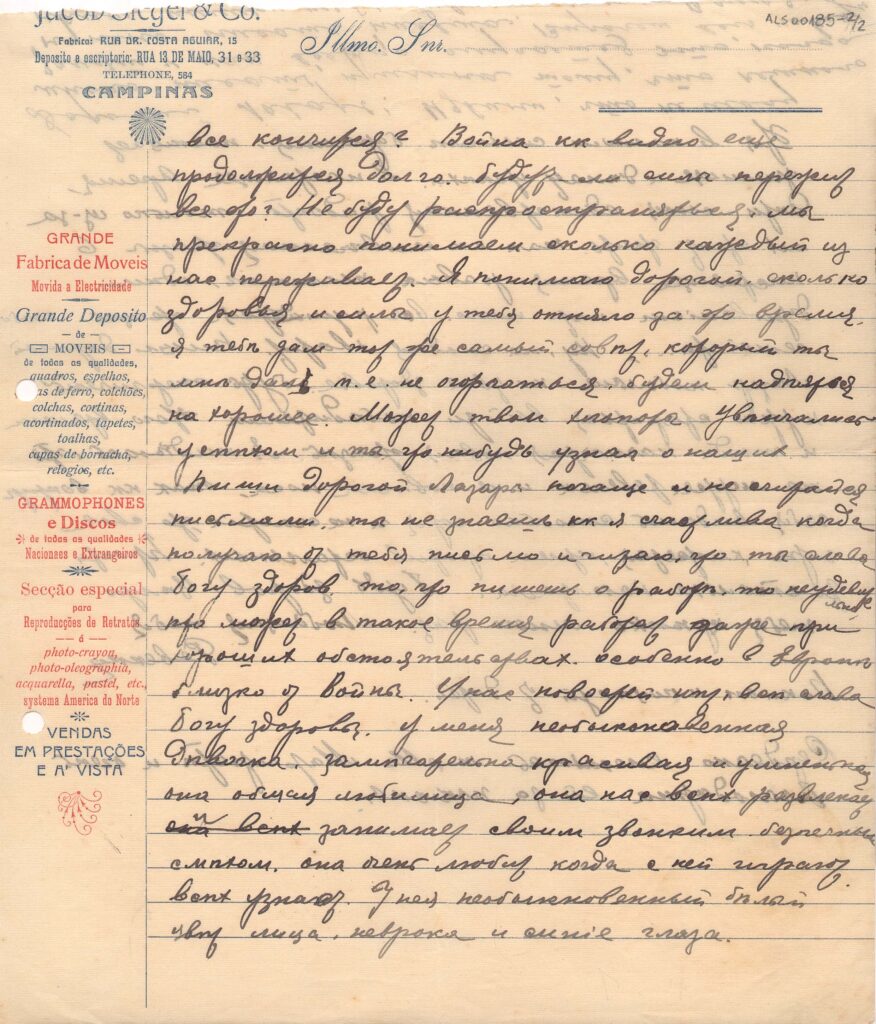 Jacob Steger & Co.
Fabrica: RUA DR. COSTA AGUIAR, 15
Deposito e escriptorio: RUA 13 DE MAIO, 31 e 33
TELEPHONE, 584
CAMPINAS
Illmo. Snr.
ALS00185-2/2
GRANDE
Fabrica de Moveis
Movida a Electricidade
Grande Deposito
— de —
MOVEIS
de todas as qualidades,
quadros, espelhos,
as de ferro, colchões,
colchas, cortinas,
acortinados, tapetes,
toalhas,
capas de borracha,
relogios, etc.
GRAMMOPHONES
e Discos
de todas as qualidades
Nacionaes e Extrangeiros
Secção especial
para
Reproducções de Retratos
á
photo-crayon,
photo-oleographia,
acquarella, pastel, etc.,
systema America do Norte
VENDAS
EM PRESTAÇÕES
E A' VISTA
все кончится? Война кк видно еще
продолжится долго. будут ли силы пережит
все это? Не буду распространяться, мы
прекрасно понимаем сколько каждый из
нас переживает. Я понимаю дорогой, сколько
здоровья и силы у тебя отняло за это время,
я тебѣ дам тот же самый совѣт, который ты
мнѣ дал т.е. не огорчаться, будем надѣяться
на хорошее. Может твои хлопоты увѣнчались
успѣхом и ты что нибудь узнал о наших.
Пиши дорогой Лазарь почаще и не считайся
письмами, ты не знаешь кк я счастлива когда
получаю от тебя письмо и читаю, что ты слава
богу здоров, то, что пишешь о работѣ, то неудивительно
кто может в такое время работат даже при
хороших обстоятельствах. особенно в Европѣ
близко от Войны. У нас новостей нѣт, всѣ слава
богу здоровы. у меня необыкновенная
Дѣвочка, замѣчательно красивая и умненькая
она общая любимица, она нас всѣх развлекает
и занимает своим звонким безпечным
смѣхом, она очень любит когда с ней играют,
всѣх узнает. У нея необыкновенный бѣлый
цвѣт лица, и синіе глаза.